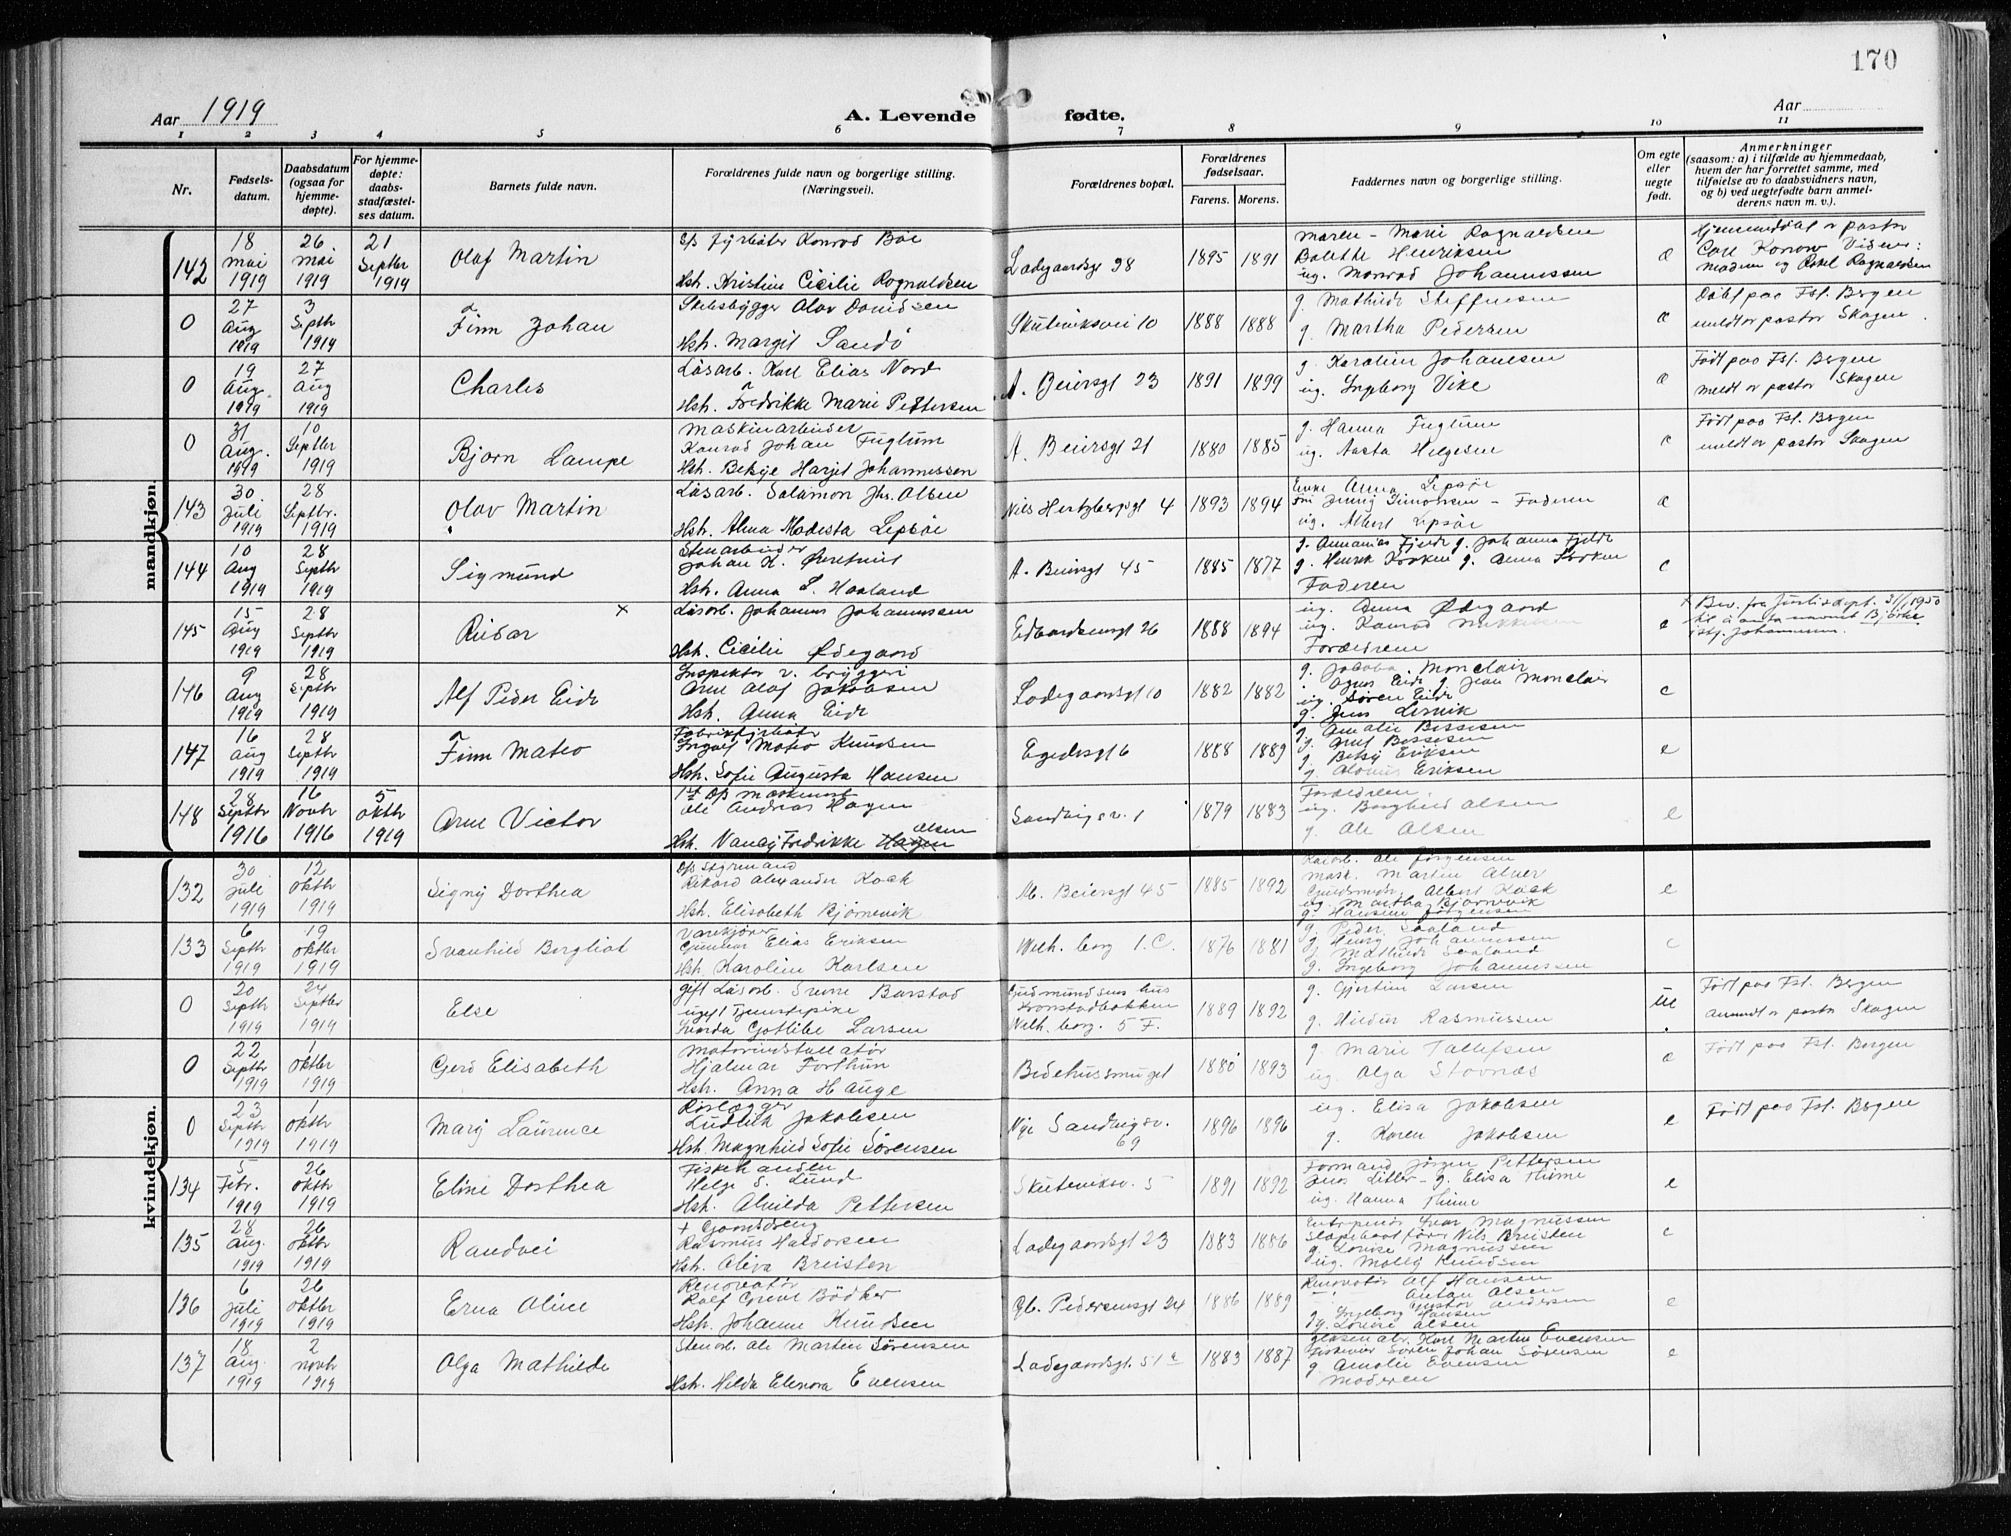 170
Aar 1919
A. Levende fødte.
Aar
1 2 3 4 5 6 7 8 9 10 11
Nr.
Fødsels-
datum.
Daabsdatum
(ogsaa for
hjemme-
døpte).
For hjemme-
døpte:
daabs-
stadfæstel-
ses datum.
Barnets fulde navn.
Forældrenes fulde navn og borgerlige stilling.
(Næringsvei).
Forældrenes bopæl.
Forældrenes
fødselsaar.
Farens. Morens.
Faddernes navn og borgerlige stilling.
Om egte
eller
uegte
født.
Anmerkninger
(saasom: a) i tilfælde av hjemmedaab,
hvem der har forrettet samme, med
tilføielse av to daabsvidners navn,
og b) ved uegtefødte barn anmel-
derens navn m. v.).
mandkjøn.
142
18 mai 1919
26 mai 1919
21 Septbr 1919
Olaf Martin
Fyrbøter Konrad Bøe
Hst. Kristine Cicilie Ragnaldsen
Ladegaardsgt 38
1895 1891
Maren-Marie Ragnaldsen
Bolette Henriksen
ug. Monrad Johannessen
0
27 Aug 1919
3 Septbr 1919
Finn Johan
Olav Davidsen
Hst. Margit Sandö
Skuteviksvei 10
1888 1888
g. Mathilde Steffensen
g. Martha Pedersen
Døbt paa Fst. Bergen
meldt av pastor Skagen
0
19 Aug. 1919
27 Aug 1919
Charles
Løsarb. Karl Elias Nord
Hst. Fredrikke Marie Pettersen
A. Beiersgt 23
1891 1899
g. Karoline Johansen
ug. Ingeborg Vike
e
Født paa Fst. Bergen
meldt av pastor Skagen
0
31 Aug. 1919
10 Septbr 1919
Bjørn Lampe
Maskinarbeider
Konrad Johan Fuglum
Hst. Johannessen
A. Beiersgt 21
1880 1885
g. Hanna Fuglum
ug. Aasta Helgesen
e
Født paa Fst. Bergen
meldt av pastor Skagen
143
30 Juli 1919
28 Septbr. 1919
Olav Martin
Løsarb. Salamon Olsen
Hst. Alma Modesta Lepsøe
Nils Hertzbergsgt 4
1893 1894
Enke Anna Lepsøe
Simonsen - Faderen
ug. Albert Lepsøe
e
144
10 Aug 1919
28 Septbr 1919
Sigmund
Stenarbeider
Johan K.
Hst. Anna S. Haaland
A. Beiersgt 45
1885 1877
g. Annanias Fjelde g. Johanna Fjelde
Faderen
e
145
15 Aug 1919
28 Septbr 1919
Reidar ×
Løsarb. Johannes Johannessen
Hst. Cicilie Ødegaard
Edvardsensgt 26
1888 1894
ug. Anna Ødegaard
ug. Konrad Mikkelsen
Forældrene
e
× Bev. fra Justisdept. 1950
til å anta navnet Bjørke
istf. Johannessen.
146
9 Aug 1919
28 Septbr 1919
Alf Peder Eide
Inspektør v. bryggeri
Arne Olaf Jakobsen
Hst. Anna Eide
Ladegaardsgt 10
1882 1882
g. Jacoba Monclair
Agnes Eide g. Jean Monclair
ug. Søren Eide
g. Jens Lervik
e
147
16 Aug 1919
28 Septbr 1919
Finn Mateo
Fabrikfyrbøter
Ingolf Mateo Knudsen
Hst. Sofie Augusta Hansen
Egedesgt 6
1888 1889
g. Amalie Bessesen
g. Bessesen
g. Betsy Eriksen
g. Eriksen
e
148
28 Septbr 1916
16 Novbr 1916
5 Oktbr 1919
Arne Victor
Ole Andreas Hagen
Hst. Nancy Fredrikke Hagen Olsen
Sandvigsv. 1
1879 1883
Forældrene.
ug. Borghild Olsen
g. Ole Olsen
e
kvindekjøn.
132
30 Juli 1919
12 Oktbr 1919
Signy Dorthea
Styrmand
Rikard Alexander Kock
Hst. Elisabeth Bjørnevik
A. Beiersgt 45
1885 1892
Ole Jørgensen
Martin Alver
Albert Kock
ug. Martha Bjørnevik
g. Hansine Jørgensen
e
133
6 Septbr 1919
19 Oktbr 1919
Svanhild Bergliot
Varekjører
Gunnar Elias Eriksen
Hst. Karoline Karlsen
Wilh. berg 1. C.
1876 1881
g. Peder Saaland
g. Henry Johannessen
g. Mathilde Saaland
g. Ingeborg Johannessen
e
0
20 Septbr 1919
24 Septbr 1919
Else
gift Løsarb. Sverre Barstad
ugift Tjenestepike
Gotlibe Larsen
Gudmundsens hus
Kronstadbakken
Wilh. berg. 5 F.
1889 1892
g. Gjertine Larsen
g. Hildur Rasmussen
ue
Født paa Fst. Bergen
anmeldt av pastor Skagen
0
22 Septbr 1919
1 Oktbr 1919
Gerd Elisabeth
Motorinstallatør
Hjalmar Forthun
Hst. Anna Hauge
Bedehussmuget
1880 1893
g. Marie Tollefsen
ug. Olga Stavnæs
e
Født paa Fst. Bergen
0
23 Septbr 1919
1 Oktbr 1919
Mary Laurence
Rørlægger
Ludvik Jakobsen
Hst. Magnhild Sofie Sørensen
Nye Sandvigsv. 69
1896 1896
ug. Elisa Jakobsen
g. Karen Jakobsen
e
Født paa Fst. Bergen
134
5 Febr. 1919
26 Oktbr 1919
Eline Dorthea
Fiskehandler
Helge S. Lund
Hst. Alvilda Pettersen
Skuteviksv. 5
1891 1892
Formand Jörgen Pettersen
Jens Litler - g. Elisa Thime
ug. Hanna Thime
e
135
28 Aug. 1919
26 Oktbr 1919
Randvei
+ Gaardsdreng
Rasmus Haldorsen
Hst. Oliva Breisten
Ladegaardsgt 23
1883 1886
Entreprenör Ivar Magnussen
Slæpebaatförer Nils Breisten
g. Lovise Magnussen
ug. Molly Knudsen
e
136
6 Juli 1919
26 Oktbr 1919
Erna Oline
Renovatør
Rolf Bödker
Hst. Johanne Knudsen
Gb. Pedersensgt 24
1886 1889
Renovatör Alf Hansen
Anton Olsen
Gustav Andersen
g. Ingeborg Hansen
g. Lovise Olsen
e
137
18 Aug. 1919
2 Novbr 1919
Olga Mathilde
Stenarb. Ole Martin Sørensen
Hst. Hilda Elenora Evensen
Ladegaardsgt. 51 a
1883 1887
Karl Martin Evensen
Søren Johan Sørensen
g. Amalie Evensen
Moderen
e